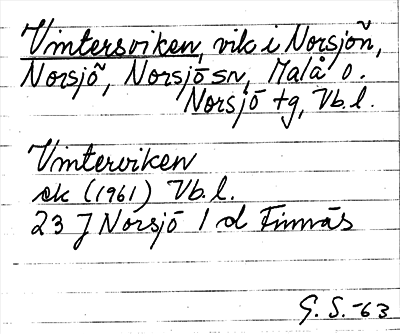 Vintersviken, vik i Norsjön,
Norsjö, Norsjö sn, Malå o.
Norsjö tg, Vb.l.
Vinterviken
ek (1961) Vb.l.
23 J Norsjö 1 d Finnäs
G. S. -63